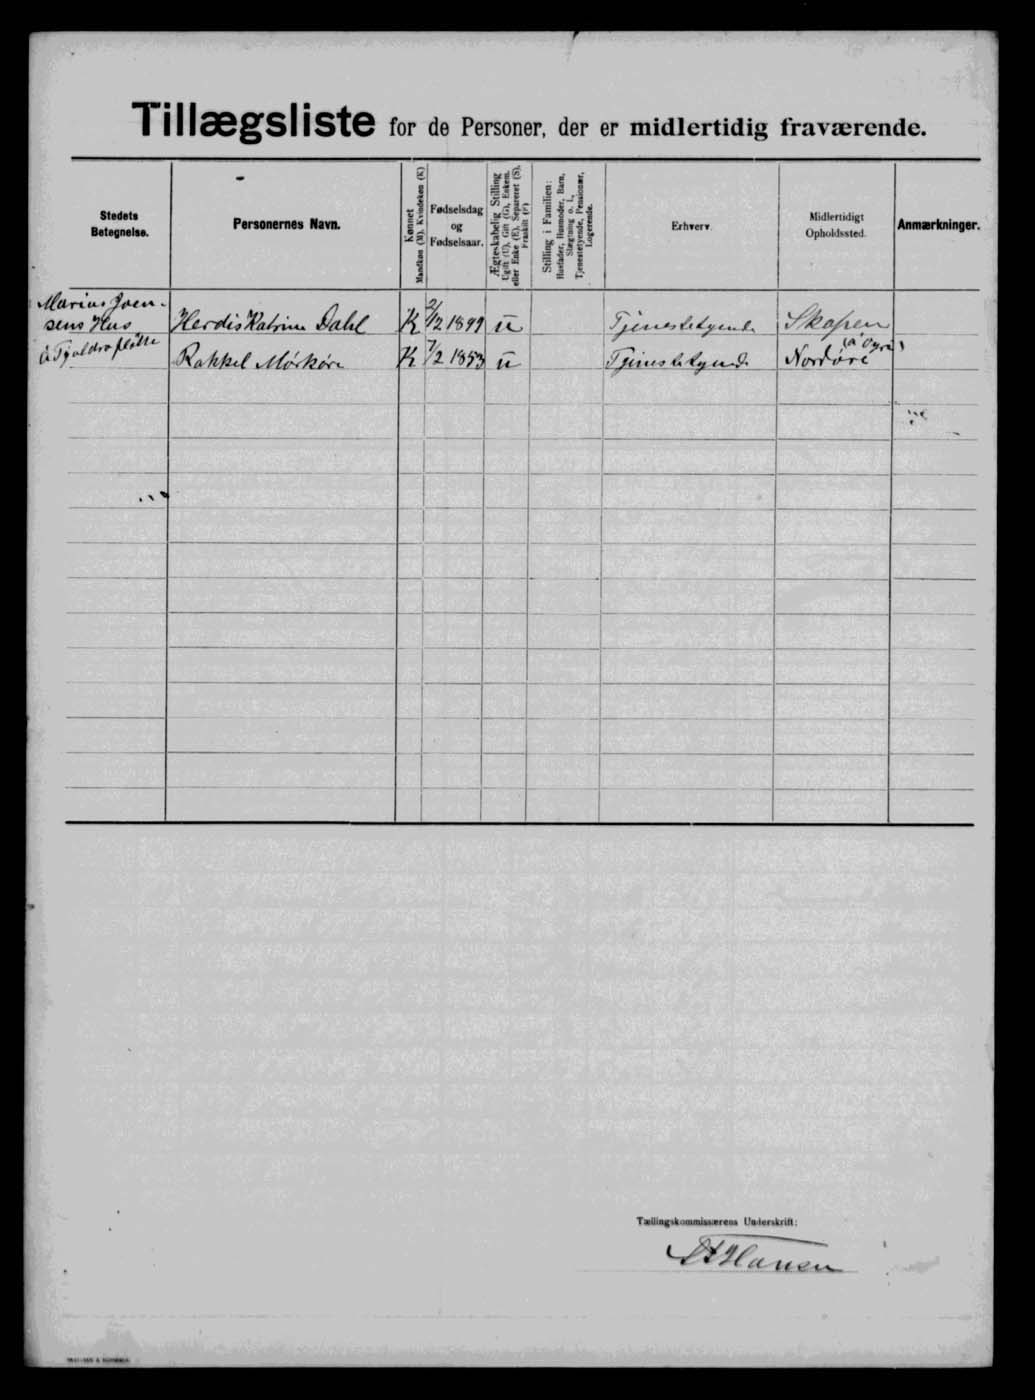 Tillægsliste for de Personer, der er midlertidig fraværende.
Stedets Betegnelse.
Personernes Navn.
Kønnet Mandkøn (M). Kvindekøn (K)
Fødselsdag og Fødselsaar.
Ægteskabelig Stilling Ugift (U), Gift (G), Enkem. eller Enke (E), Separeret (S), Fraskilt (F)
Stilling i Familien: Husfader, Husmoder, Barn, Slægtning o. l., Tjenestetyende, Pensionær, Logerende.
Erhverv.
Midlertidigt Opholdssted.
Anmærkninger.
Marius Joen-
sens Hus Herdis Katrine Dahl K 2/12 1899 u Tjenestetyende Skopen
Rakkel Mørkøre K 7/2 1853 u Tjenestetyende Nordøre
Tællingskommissærens Underskrift:
Hansen